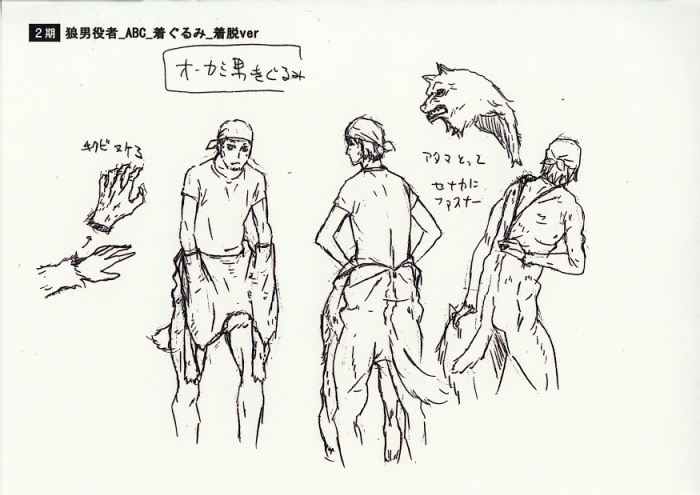 2期 狼男役者_ABC_着ぐるみ_着脱ver
オーカミ男きぐるみ
テクビ ヌケる
アタマ とって
セナカに
ファスナー